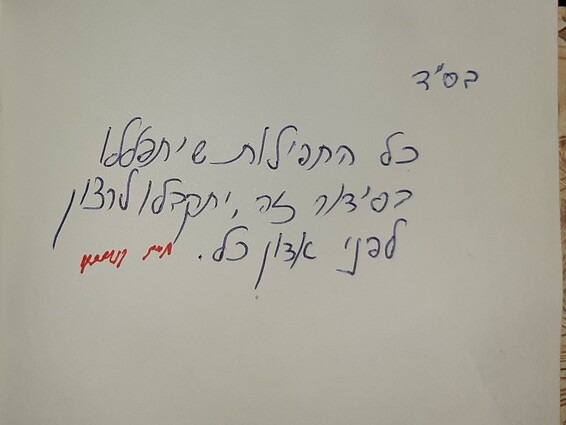 בס"ד
כל התפילות שיתפללו
בסידור זה, יתקבלו לרצון
לפני אדון כל.